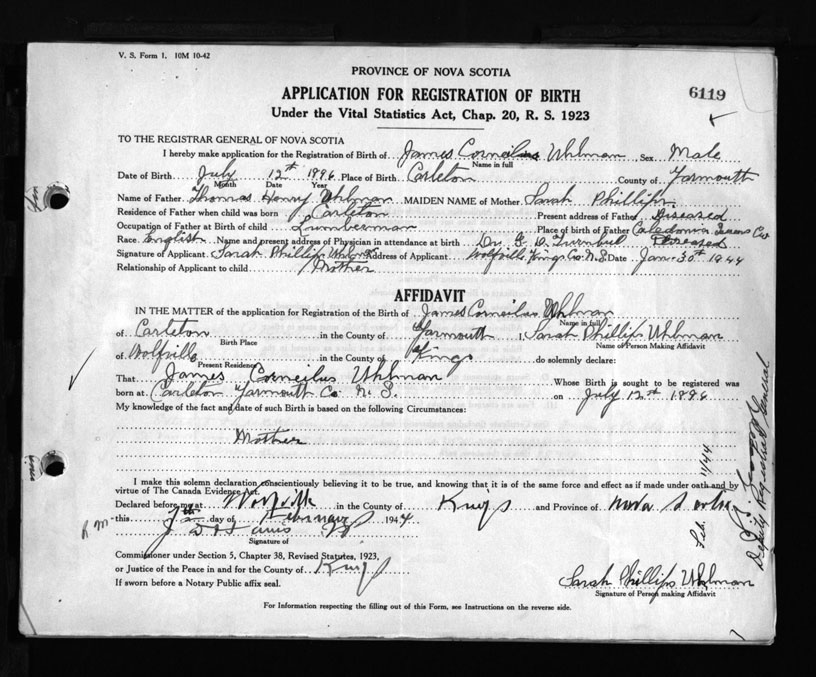 V. S. Form 1. 10M 10-42
PROVINCE OF NOVA SCOTIA
6119
APPLICATION FOR REGISTRATION OF BIRTH
Under the Vital Statistics Act, Chap. 20, R. S. 1923
TO THE REGISTRAR GENERAL OF NOVA SCOTIA
I hereby make application for the Registration of Birth of James Corneilus Uhlman Sex Male
Name in full
Date of Birth July 12th 1896 Place of Birth Carleton County of Yarmouth
Month Date Year
Name of Father Thomas Henry Uhlman MAIDEN NAME of Mother Sarah Phillips
Residence of Father when child was born Carleton Present address of Father Diseased
Occupation of Father at Birth of child Lumberman Place of birth of Father Caledonia Queens Co
Race English Name and present address of Physician in attendance at birth Dr. Turnbull Diseased
Signature of Applicant Sarah Phillips Uhlman Address of Applicant Wolfville Kings Co N.S Date Jan-30th 1944
Relationship of Applicant to child Mother
AFFIDAVIT
IN THE MATTER of the application for Registration of the Birth of James Corneilus Uhlman
Name in full
of Carleton in the County of Yarmouth I, Sarah Phillips Uhlman
Birth Place Name of Person Making Affidavit
of Wolfville in the County of Kings do solemnly declare:
Present Residence
That James Corneilus Uhlman Whose Birth is sought to be registered was
born at Carleton Yarmouth Co. N. S. on July 12th 1896
My knowledge of the fact and date of such Birth is based on the following Circumstances:
Mother
I make this solemn declaration conscientiously believing it to be true, and knowing that it is of the same force and effect as if made under oath and by
virtue of The Canada Evidence Act.
Declared before me at Wolfville in the County of Kings and Province of Nova Scotia
this 7th day of February 1944
Signature of
Commissioner under Section 5, Chapter 38, Revised Statutes, 1923,
or Justice of the Peace in and for the County of Kings
If sworn before a Notary Public affix seal.
Sarah Phillips Uhlman
Signature of Person making Affidavit
For Information respecting the filling out of this Form, see Instructions on the reverse side.
Feb. 11/44
Deputy Registrar General